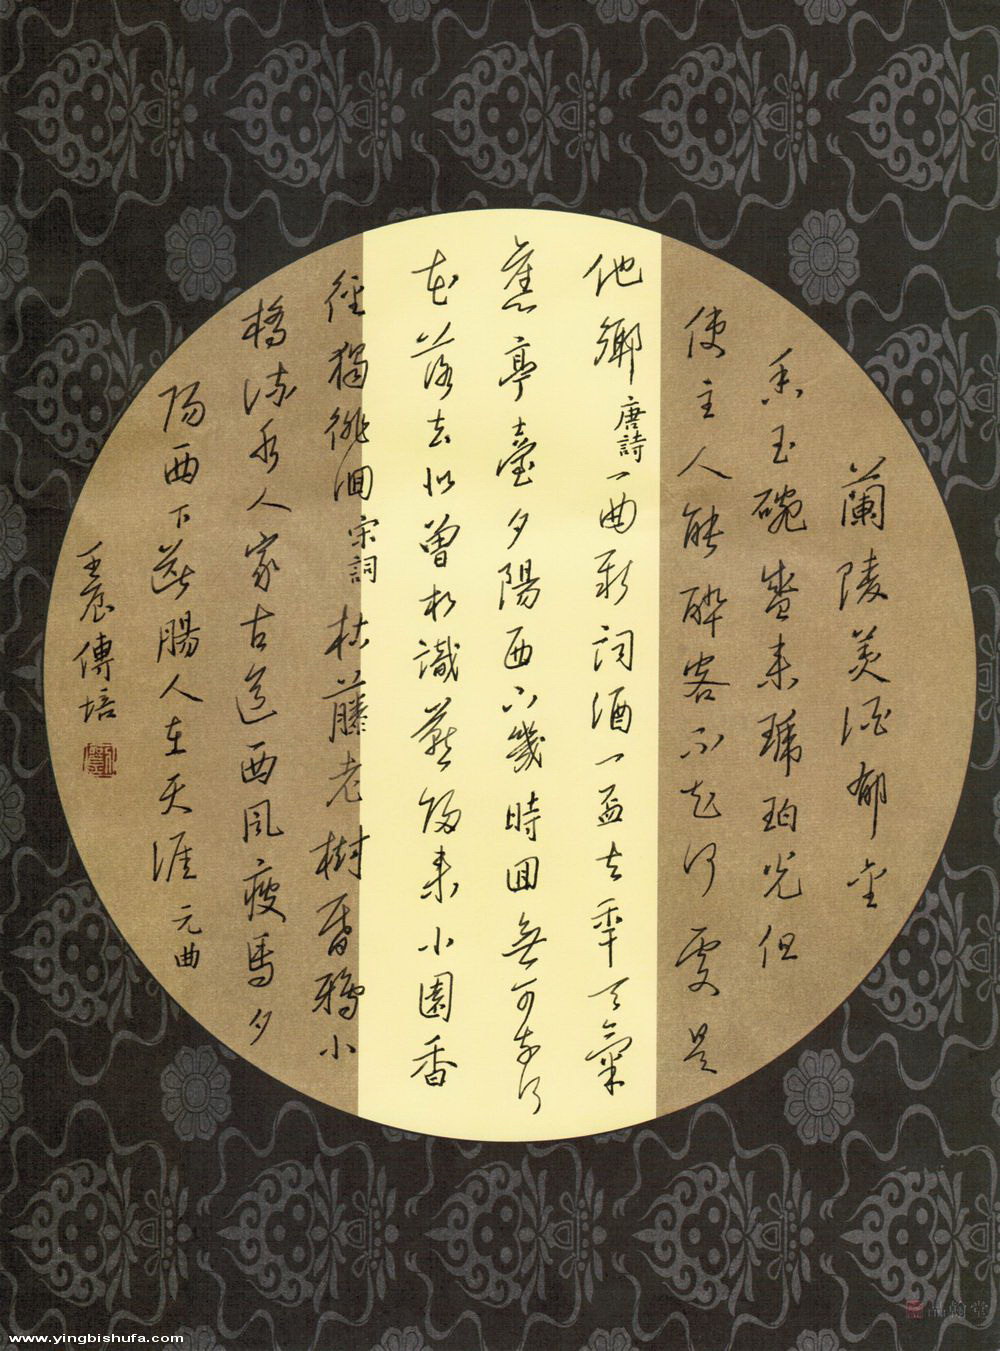 蘭陵美酒郁金
香玉碗盛来琥珀光但
使主人能醉客不知何處是
他鄉 唐詩 一曲新詞酒一盃去年天氣
舊亭臺夕陽西下幾時回無可奈何
花落去似曾相識燕歸来小園香
徑獨徘徊 宋詞 枯藤老樹昏鴉小
橋流水人家古道西風瘦馬夕
陽西下斷腸人在天涯 元曲
壬辰傳培
www.yingbishufa.com